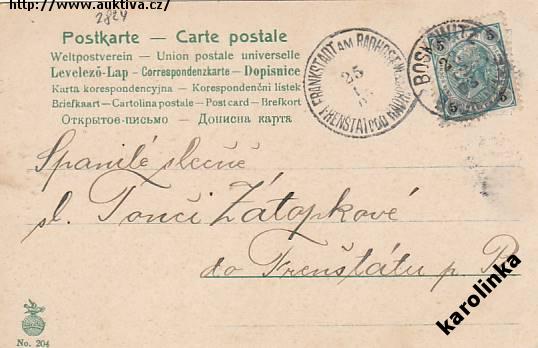 http://www.auktiva.cz/
2824
Postkarte — Carte postale
Weltpostverein — Union postale universelle
Levelező-Lap - Correspondenzkarte - Dopisnice
Karta korespondencyjna — Korespondenční listek
Briefkaart - Cartolina postale - Postcard - Brefkort
Открытое-письмо — Дописна карта
FRANKSTADT AM RADHOSCHT
25
1
FRENŠTÁT POD RADH
BOSKOWITZ
5 5
5 5
Spanilé slečně
sl. Tonči Zátopkové
do Frenštátu p. R
karolinka
No. 204